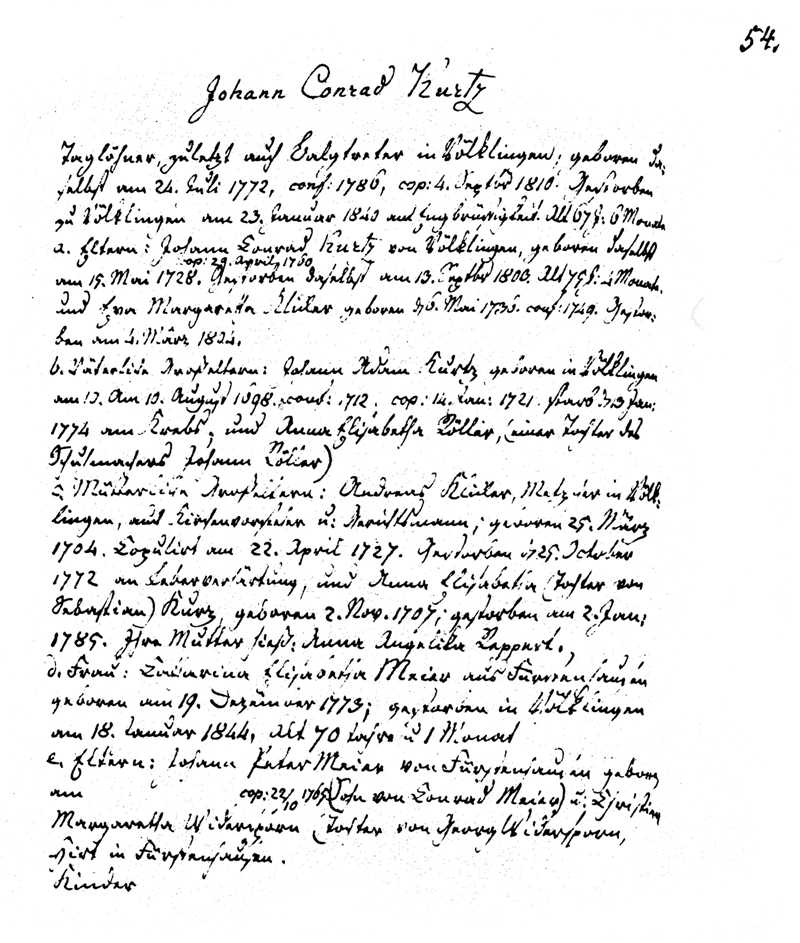 54.
Johann Conrad Kurtz
Taglöhner, zuletzt auch Balgtreter in Völklingen; geboren da-
selbst am 24. Juli 1772, conf: 1786, cop: 4. Septbr 1810. Gestorben
zu Völklingen am 23. Januar 1840 an Engbrüstigkeit. Alt 67 J: 6 Monate
a. Eltern: Johann Conrad Kurtz von Völklingen, geboren daselbst
cop: 29. April 1760
am 15. Mai 1728. Gestorben daselbst am 13. Septbr 1803. Alt 75 J: 4 Monate.
und Eva Margaretha Klicker geboren d 6. Mai 1736. conf: 1749. Gestor-
ben am 4. März 1804.
b. Väterliche Großeltern: Johann Adam Kurtz geboren in Völklingen
am 10. August 1698. conf: 1712. cop: 14. Jan: 1721. starb d Jan:
1774 am Krebs, und Anna Elisabetha Röller, (einer Tochter des
Schuhmachers Johann Röller)
c. Mütterliche Großeltern: Andreas Klicker, Metzger in Völk-
lingen, auch Kirchenvorsteher u: Gerichtsmann; geboren 25. März
1704. Copulirt am 22. April 1727. Gestorben d 25. October
1772 an Leberverhärtung, und Anna Elisabetha (Tochter von
Sebastian) Kurtz, geboren 2. Nov. 1707; gestorben am 2. Jan:
1785. Ihre Mutter hieß: Anna Angelika Reppert.
d. Frau: Catharina Elisabetha Meier aus Fürstenhausen
geboren am 19. Dezember 1773; gestorben in Völklingen
am 18. Januar 1844, Alt 70 Jahre u 1 Monat
e. Eltern: Johann Peter Meier von Fürstenhausen geboren
am cop: 22/10 1765 (Sohn von Conrad Meier) u: Christian
Margaretha Widersporn (Tochter von Georg Widersporn,
Hirt in Fürstenhausen.
Kinder